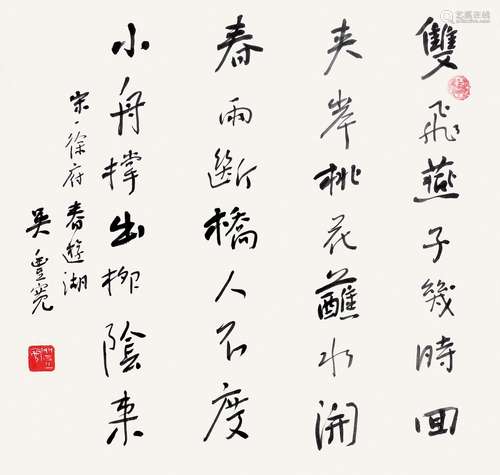 雙飛燕子幾時回
夾岸桃花蘸水開
春雨斷橋人不度
小舟撐出柳陰來
宋·徐府春遊湖
吳豐